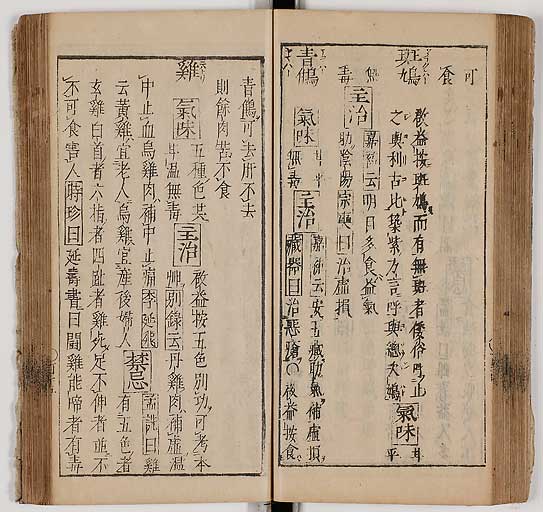 可食
斑鳩
敬益按斑鳩而有無斑者俗呼
之與利古比築紫方言呼與總夫鳩氣味甘平
無毒主治嘉祐云明目多食益氣
助陰陽宗奭曰治虛損
青鳩氣味甘平無毒主治嘉祐云安五臟助氣補虛損
藏器曰治惡瘡〇敬益按食
青鳩可去肝不去
則餘肉苦不食
雞氣味五種色異
甘溫無毒主治敬益按五色別功可考本
艸別錄云丹雞肉補虛溫
中止血烏雞肉補中止痛李延飛
云黃雞宜老人烏雞宜產後婦人禁忌孟詵曰雞
有五色者
玄雞白首者六指者四趾者雞死足不伸者並不
可食害人時珍曰延壽書曰閹雞能啼者有毒